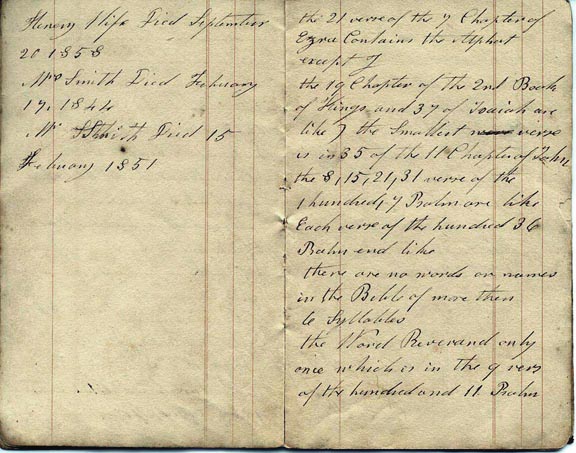 Henery Wife Died September
20 1858
Mrs Smith Died February
17, 1844
Mr Smith Died 15
February 1851
the 21 verse of the 7 Chapter of
Ezra Contains the Alphat
except J
the 19 Chapter of the 2nd Book
of Kings and 37 of Isaiah are
like J the Smallest verse
is in 35 of the 11 Chapter of John
the 8, 15, 21, 31 verse of the
1 hundred, 7 Psalm are like
Each verse of the hundred 36
Psalm end like
there are no words or names
in the Bible of more then
6 Syllables
the Word Reverand only
once which is in the 9 vers
of the hundred and 11 Psalm